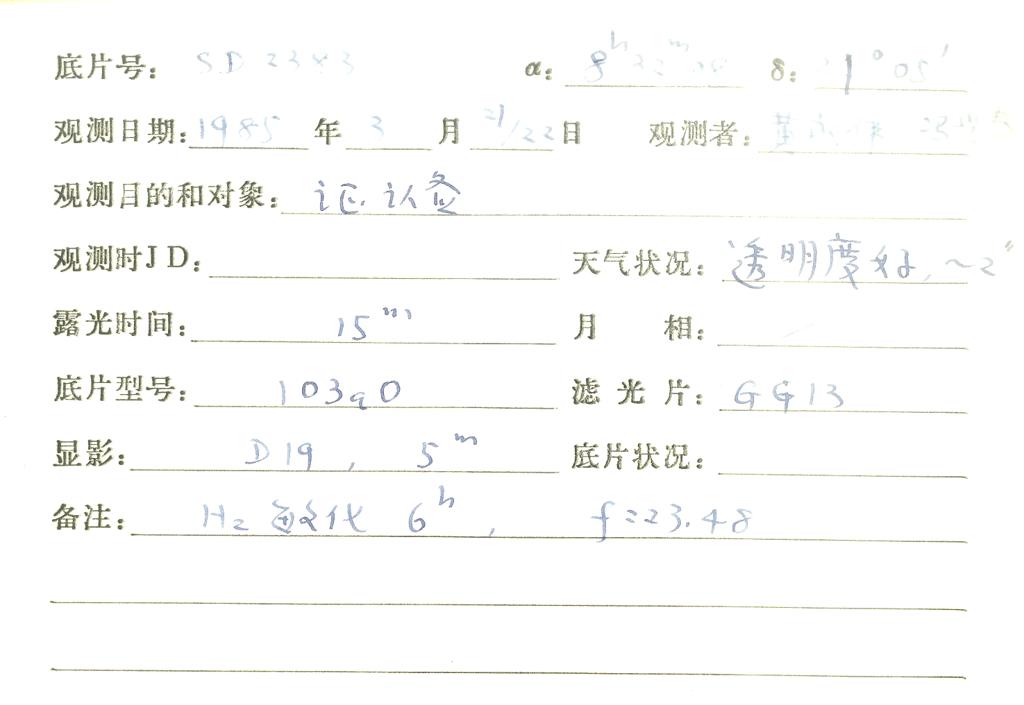 底片号: SD 2383 α: 8h 32m 08 δ: 1° 05′
观测日期: 1985 年 3 月 21/22 日 观测者: 黄
观测目的和对象: 证认
观测时JD: 天气状况: 透明度好, ~2″
露光时间: 15m 月 相:
底片型号: 103aO 滤 光 片: GG13
显影: D19, 5m 底片状况:
备注: H2 敏化 6h, f=23.48